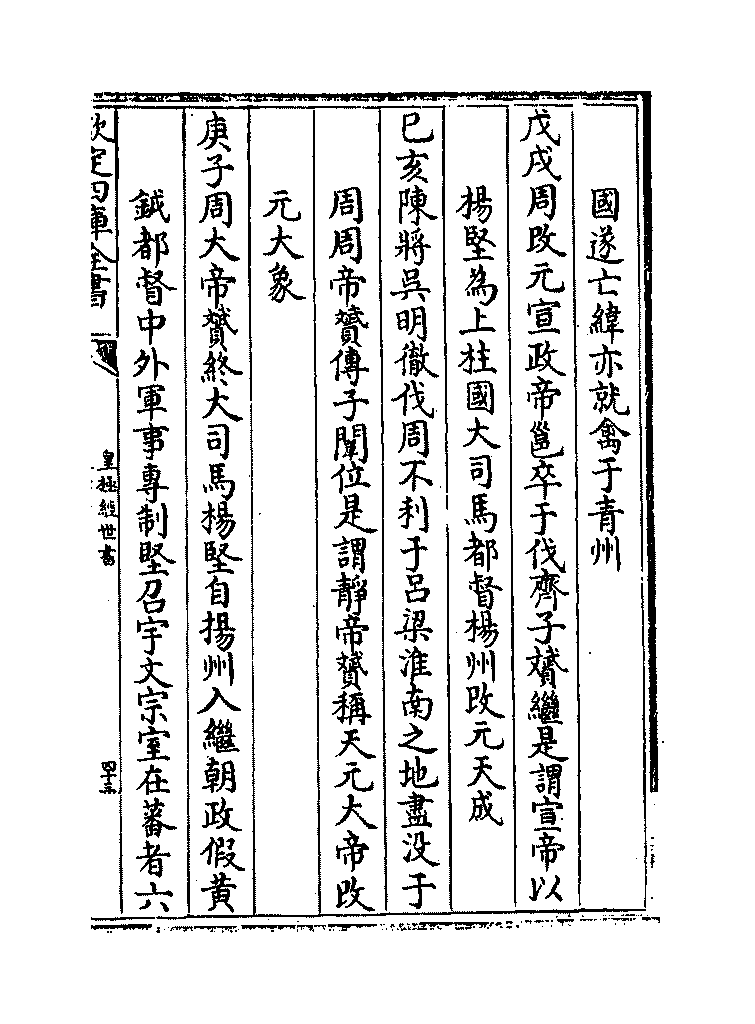 國遂亡緯亦就禽于青州
戊戌周改元宣政帝邕卒于伐齊子贇繼是謂宣帝以
楊堅為上柱國大司馬都督楊州改元天成
己亥陳將吳明徹伐周不利于呂梁淮南之地盡没于
周周帝贇傳子闡位是謂靜帝贇稱天元大帝改
元大象
庚子周大帝贇終大司馬楊堅自揚州入繼朝政假黄
鉞都督中外軍事專制堅召宇文宗室在蕃者六
欽定四庫全書
皇極經世書
四十三